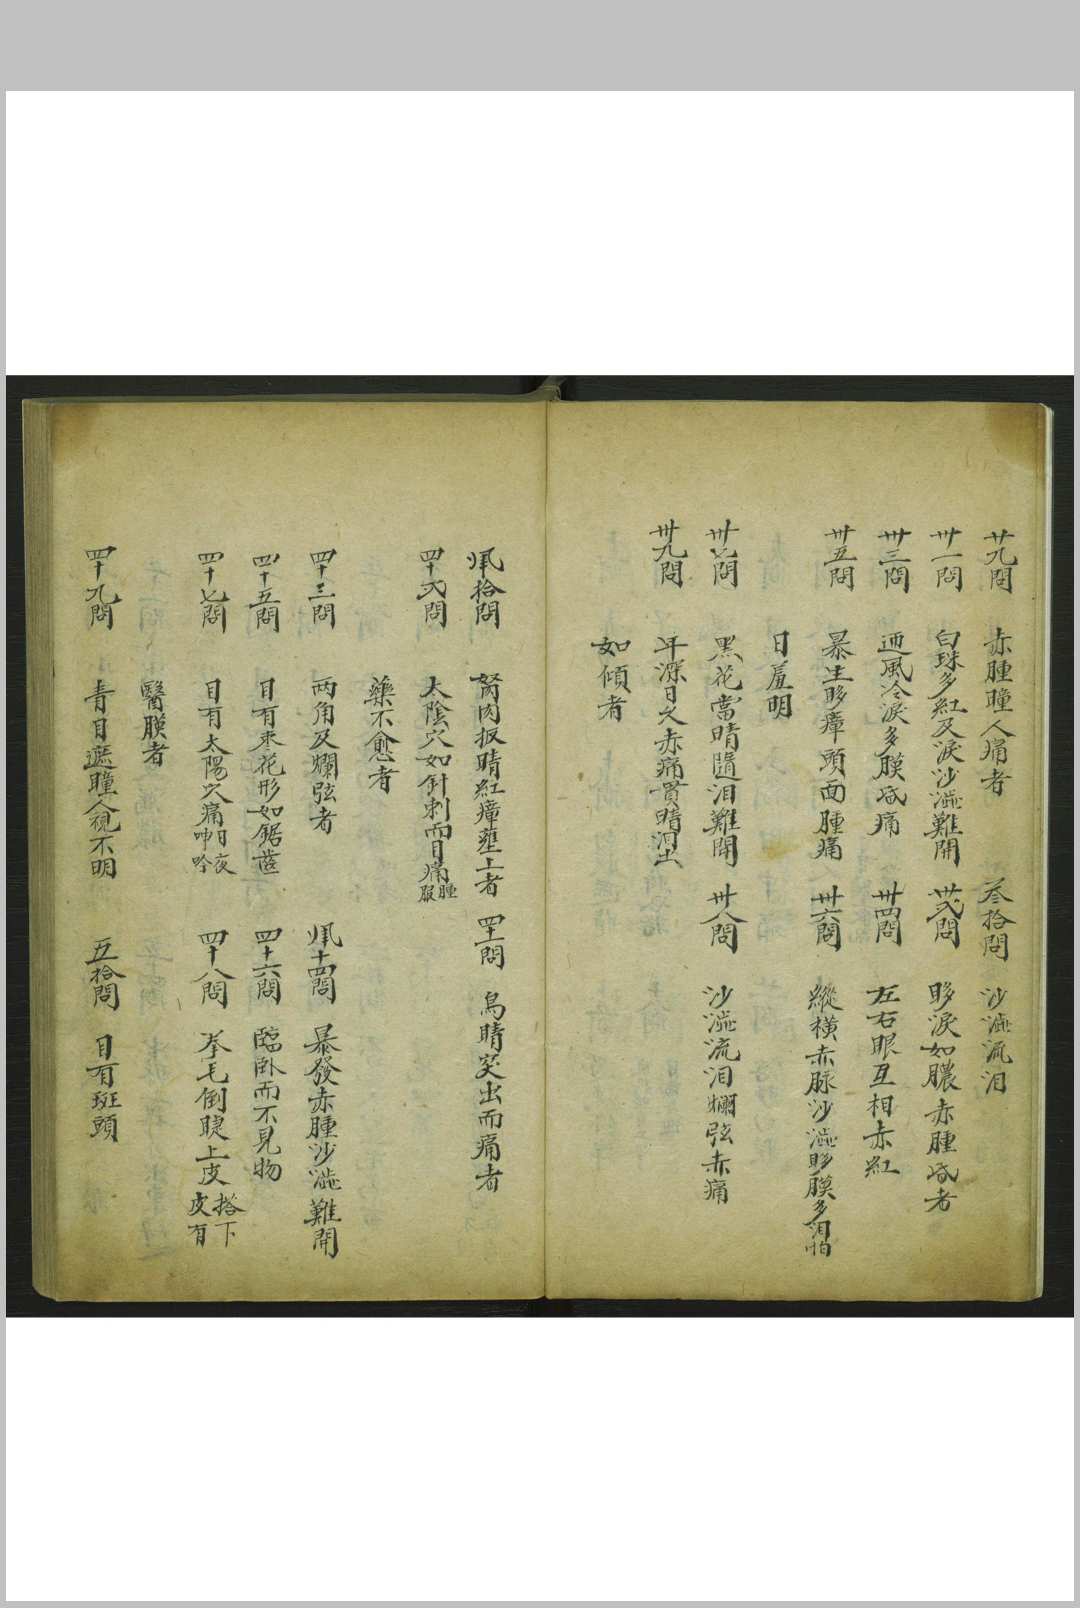 廿九問 赤腫瞳人痛者 叁拾問 沙澁流泪
卅一問 白珠多紅及淚沙澁難開 卅弍問 眵淚如膿赤腫昏者
卅三問 迊風冷淚多膜昏痛 卅四問 左右眼互相赤紅
卅五問 暴生眵瘴頭面腫痛 卅六問 縱橫赤脉沙澁眵膜多泪怕
日羞明
卅七問 黑花當睛隨泪難開 卅八問 沙澁流泪爛弦赤痛
卅九問 年深日久赤痛貫睛泪出
如傾者
肆拾問 努肉扳睛紅瘴壅上者 四十一問 烏睛突出而痛者
四十弍問 太陰穴如針刺而目痛腫服
藥不愈者
四十三問 两角及爛弦者 肆十四問 暴發赤腫沙澁難開
四十五問 目有枣花形如鋸齒 四十六問 臨卧而不見物
四十七問 目有太陽穴痛日夜呻吟 四十八問 拳毛倒睫上皮搭下皮有
醫膜者
四十九問 青目遮瞳人視不明 五拾問 目有斑頭